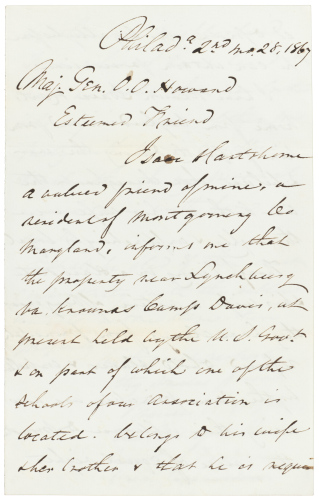 Philadᵃ 2nd mo. 28, 1867
Maj. Gen. O. O. Howard
Esteemed Friend
Isaac Hartshorne
a valued friend of mine, a
resident of Montgomery Co
Maryland, informs me that
the property near Lynchburg
Va. known as Camp Davis, at
present held by the U. S. Gov't
& on part of which one of the
schools of our Association is
located. belongs to his wife
& her brother & that he is requir